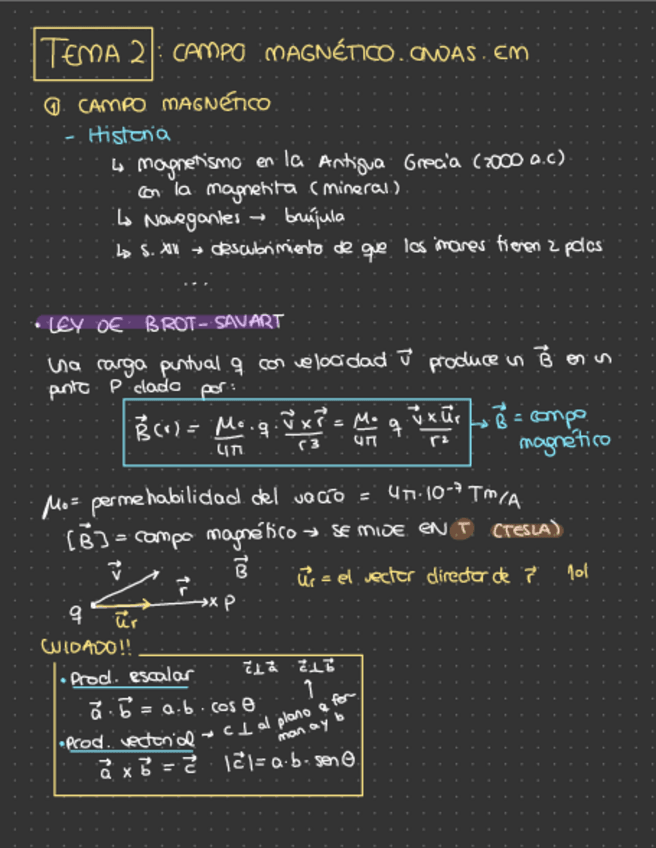 TEMA 2: CAMPO MAGNÉTICO. ONDAS. EM
① CAMPO MAGNÉTICO
- Historia
↳ magnetismo en la Antigua Grecia (2000 a.c)
con la magnetita (mineral)
↳ Navegantes → brújula
↳ S. XII → descubrimiento de que los imanes tienen 2 polos
...
• LEY DE BIOT-SAVART
Una carga puntual q con velocidad v⃗ produce un B⃗ en un
punto P dado por:
B⃗(r) = μ₀/4π · q · v⃗ x r⃗/r³ = μ₀/4π q v⃗ x u⃗r/r² → B⃗ = campo
magnético
μ₀ = permehabilidad del vacío = 4π·10⁻⁷ Tm/A
[B⃗] = campo magnético → SE MIDE EN T (TESLA)
v⃗ r⃗ B⃗ u⃗r = el vector director de r⃗
q u⃗r x P
CUIDADO!!
• Prod. escalar c⃗⊥a⃗ c⃗⊥b⃗
a⃗ · b⃗ = a·b · cos θ ↑
• Prod. vectorial → c ⊥ al plano q for-
man a y b
a⃗ x b⃗ = c⃗ |c⃗| = a·b·sen θ